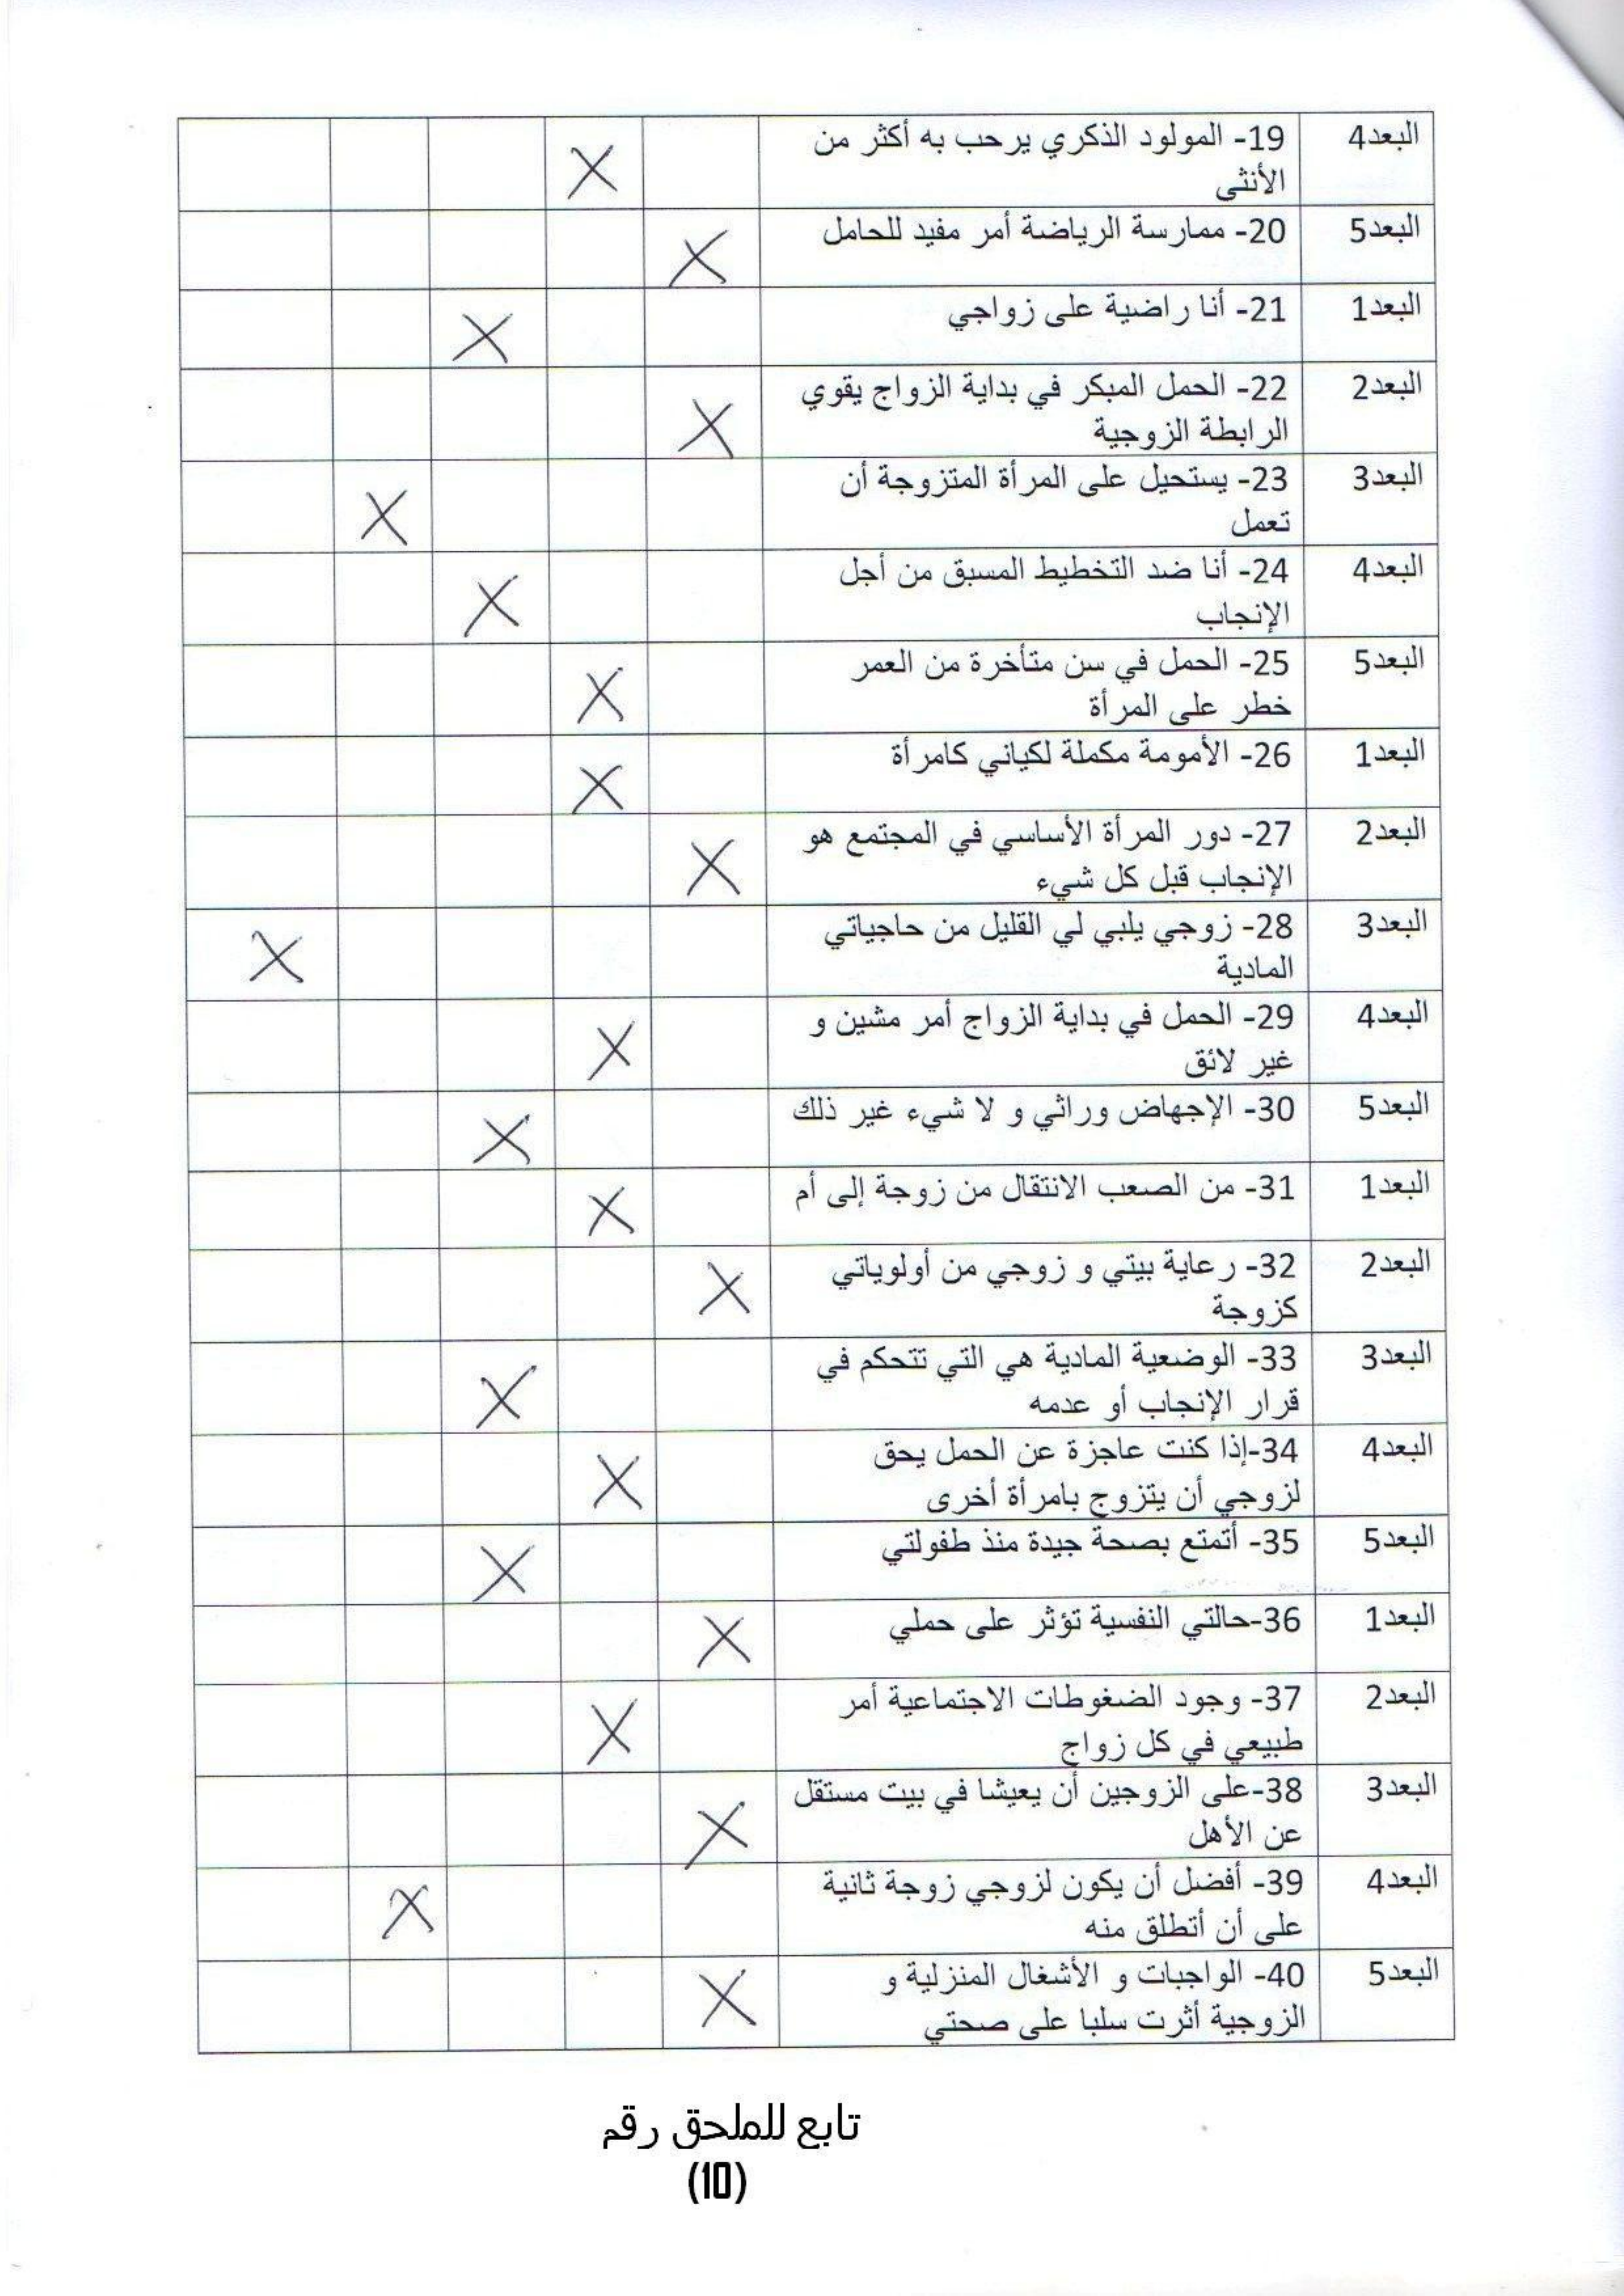 البعد4 19- المولود الذكري يرحب به أكثر من
الأنثى X
البعد5 20- ممارسة الرياضة أمر مفيد للحامل X
البعد1 21- أنا راضية على زواجي X
البعد2 22- الحمل المبكر في بداية الزواج يقوي
الرابطة الزوجية X
البعد3 23- يستحيل على المرأة المتزوجة أن
تعمل X
البعد4 24- أنا ضد التخطيط المسبق من أجل
الإنجاب X
البعد5 25- الحمل في سن متأخرة من العمر
خطر على المرأة X
البعد1 26- الأمومة مكملة لكياني كامرأة X
البعد2 27- دور المرأة الأساسي في المجتمع هو
الإنجاب قبل كل شيء X
البعد3 28- زوجي يلبي لي القليل من حاجياتي
المادية X
البعد4 29- الحمل في بداية الزواج أمر مشين و
غير لائق X
البعد5 30- الإجهاض وراثي و لا شيء غير ذلك X
البعد1 31- من الصعب الانتقال من زوجة إلى أم X
البعد2 32- رعاية بيتي و زوجي من أولوياتي
كزوجة X
البعد3 33- الوضعية المادية هي التي تتحكم في
قرار الإنجاب أو عدمه X
البعد4 34-إذا كنت عاجزة عن الحمل يحق
لزوجي أن يتزوج بامرأة أخرى X
البعد5 35- أتمتع بصحة جيدة منذ طفولتي X
البعد1 36-حالتي النفسية تؤثر على حملي X
البعد2 37- وجود الضغوطات الاجتماعية أمر
طبيعي في كل زواج X
البعد3 38-على الزوجين أن يعيشا في بيت مستقل
عن الأهل X
البعد4 39- أفضل أن يكون لزوجي زوجة ثانية
على أن أتطلق منه X
البعد5 40- الواجبات و الأشغال المنزلية و
الزوجية أثرت سلبا على صحتي X
تابع للملحق رقم
(10)